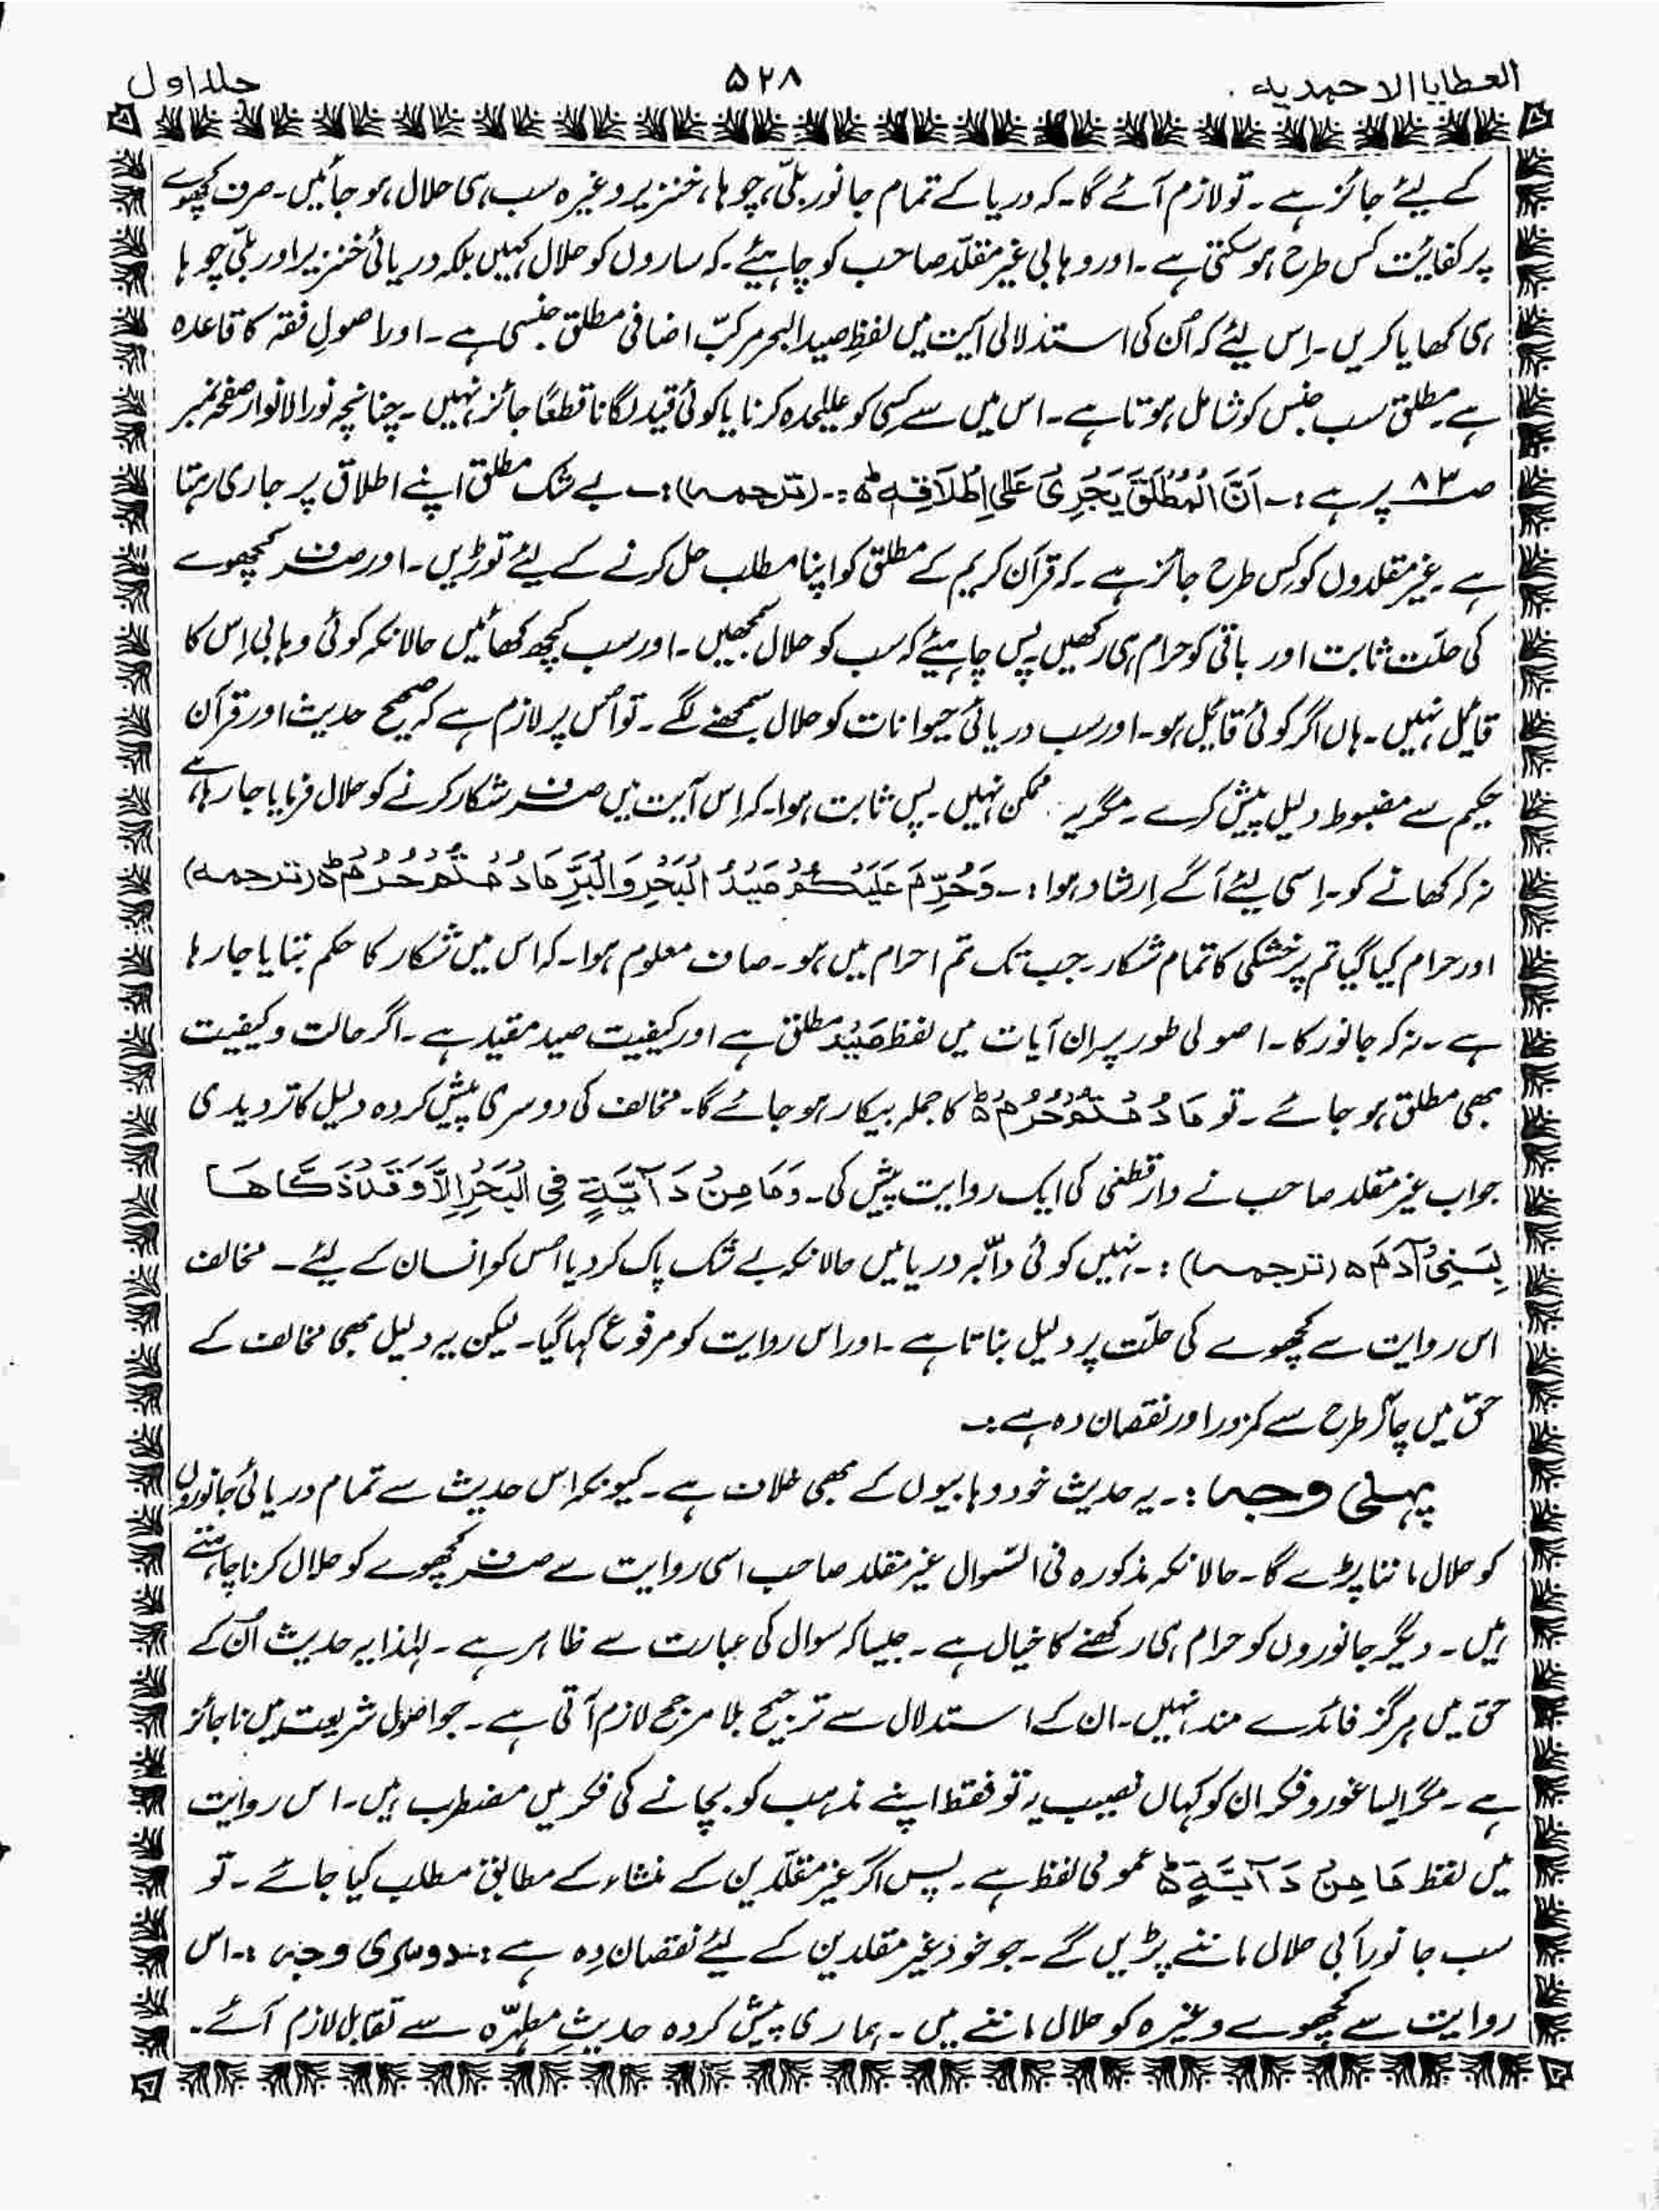 العطایا الاحمدیہ
۵۲۸
جلد اول
کے لیئے جائز ہے۔ تو لازم آئے گا۔ کہ دریا کے تمام جانور بلّی، چوہا، خنزیر وغیرہ سب ہی حلال ہو جائیں۔ صرف کچھوے
پر کفائت کس طرح ہو سکتی ہے۔ اور وہابی غیر مقلّد صاحب کو چاہیئے۔ کہ ساروں کو حلال کہیں بلکہ دریائی خنزیر اور بلّی چوہا
ہی کھایا کریں۔ اِس لیئے کہ اُن کی استدلالی آیت میں لفظِ صید البحر مرکبّ اضافی مطلق جنسی ہے۔ اور اصولِ فقہ کا قاعدہ
ہے۔ مطلق سب جنس کو شامل ہوتا ہے۔ اس میں سے کسِی کو علیٰحدہ کرنا یا کوئی قید لگانا قطعًا جائز نہیں۔ چنانچہ نور الانوار صفحہ نمبر
صـ ۸۳ پر ہے :۔ اَنَّ الْمُطْلَقَ یَجْرِیْ عَلیٰ اِطْلَاقِہٖ ط :۔ (ترجمہ) :۔ بے شک مطلق اپنے اطلاق پر جاری رہتا
ہے۔ غیر مقلدوں کو کِس طرح جائز ہے۔ کہ قرآن کریم کے مطلق کو اپنا مطلب حل کرنے کے لیئے توڑیں۔ اور صرف کچھوے
کی حلّت ثابت اور باقی کو حرام ہی رکھیں پس چاہیئے کہ سب کو حلال سمجھیں۔ اور سب کچھ کھائیں حالانکہ کوئی وہابی اِس کا
قائِل نہیں۔ ہاں اگر کوئی قائِل ہو۔ اور سب دریائی حیوانات کو حلال سمجھنے لگے۔ تو اُس پر لازم ہے کہ صحیح حدیث اور قرآن
حکیم سے مضبوط دلیل پیش کرے۔ مگر یہ ممکن نہیں۔ پس ثابت ہوا۔ کہ اِس آیت میں صرف شکار کرنے کو حلال فرمایا جا رہا ہے
نہ کہ کھانے کو۔ اِسی لیئے آگے اِرشاد ہوا :۔ وَحُرِّمَ عَلَیْکُمْ صَیْدُ الْبَحْرِ وَالْبَرِّ مَا دُمْتُمْ حُرُمً ط (ترجمہ)
اور حرام کیا گیا تم پر خشکی کا تمام شکار۔ جب تک تم احرام میں ہو۔ صاف معلوم ہوا۔ کہ اس میں شکار کا حکم بتایا جا رہا
ہے۔ نہ کہ جانور کا۔ اصولی طور پر اِن آیات میں لفظ صَیْدُ مطلق ہے اور کیفیت صید مقید ہے۔ اگر حالت و کیفیت
بھی مطلق ہو جائے۔ تو مَا دُمْتُمْ حُرُمً ط کا جملہ بیکار ہو جائے گا۔ مخالف کی دوسری پیش کردہ دلیل کا تردیدی
جواب غیر مقلد صاحب نے دار قطنی کی ایک روایت پیش کی۔ وَمَا مِنْ دَآبَّۃٍ فِی الْبَحْرِ اِلَّا وَقَدْ ذَکَّاھَا
لِبَنِیْ آدَمَ ہ (ترجمہ) :۔ نہیں کوئی دابّہ دریا میں حالانکہ بے شک پاک کر دیا اُس کو انسان کے لیئے۔ مخالف
اس روایت سے کچھوے کی حلّت پر دلیل بناتا ہے۔ اور اس روایت کو مرفوع کہا گیا۔ لیکن یہ دلیل بھی مخالف کے
حقّ میں چار طرح سے کمزور اور نقصان دہ ہے :۔
پہلی وجہ :۔ یہ حدیث خود وہابیوں کے بھی خلاف ہے۔ کیونکہ اس حدیث سے تمام دریائی جانوروں
کو حلال ماننا پڑے گا۔ حالانکہ مذکورہ فی السّوال غیر مقلد صاحب اسی روایت سے صرف کچھوے کو حلال کرنا چاہتے
ہیں۔ دیگر جانوروں کو حرام ہی رکھنے کا خیال ہے۔ جیسا کہ سوال کی عبارت سے ظاہر ہے۔ لہٰذا یہ حدیث اُن کے
حق میں ہرگز فائدے مند نہیں۔ ان کے استدلال سے ترجیح بلا مرجح لازم آتی ہے۔ جو اصولِ شریعت میں ناجائز
ہے۔ مگر ایسا غور و فکر ان کو کہاں نصیب یہ تو فقط اپنے مذہب کو بچانے کی فکر میں مضطرب ہیں۔ اس روایت
میں لفظ مَا مِنْ دَآبَّۃٍ ط عمومی لفظ ہے۔ پس اگر غیر مقلّدین کے منشاء کے مطابق مطلب کیا جائے۔ تو
سب جانور آبی حلال ماننے پڑیں گے۔ جو خود غیر مقلدین کے لیئے نقصان دِہ ہے :۔ دوسری وجہ :۔ اس
روایت سے کچھوے وغیرہ کو حلال ماننے میں۔ ہماری پیش کردہ حدیثِ مطہّرہ سے تقابل لازم آئے۔